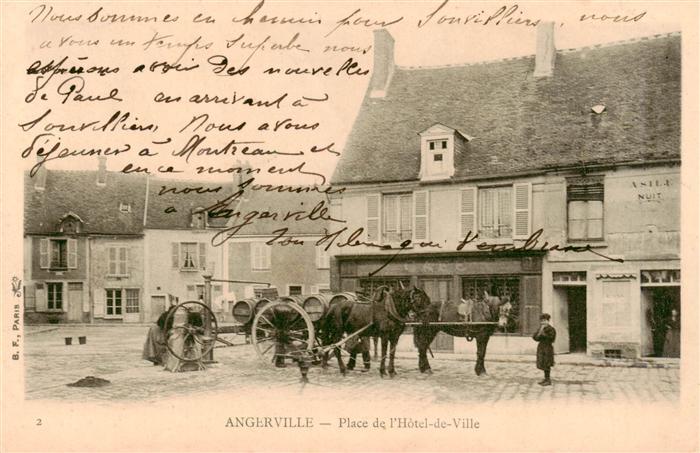 Nous sommes en chemin pour Souvilliers, nous
avons un temps superbe nous
espérons avoir des nouvelles
de Paul en arrivant à
Souvilliers, Nous avons
déjeuner à Montereau et
en ce moment
nous sommes
à Angerville
ton
ASILE
NUIT
B. F., PARIS
2
ANGERVILLE — Place de l'Hôtel-de-Ville